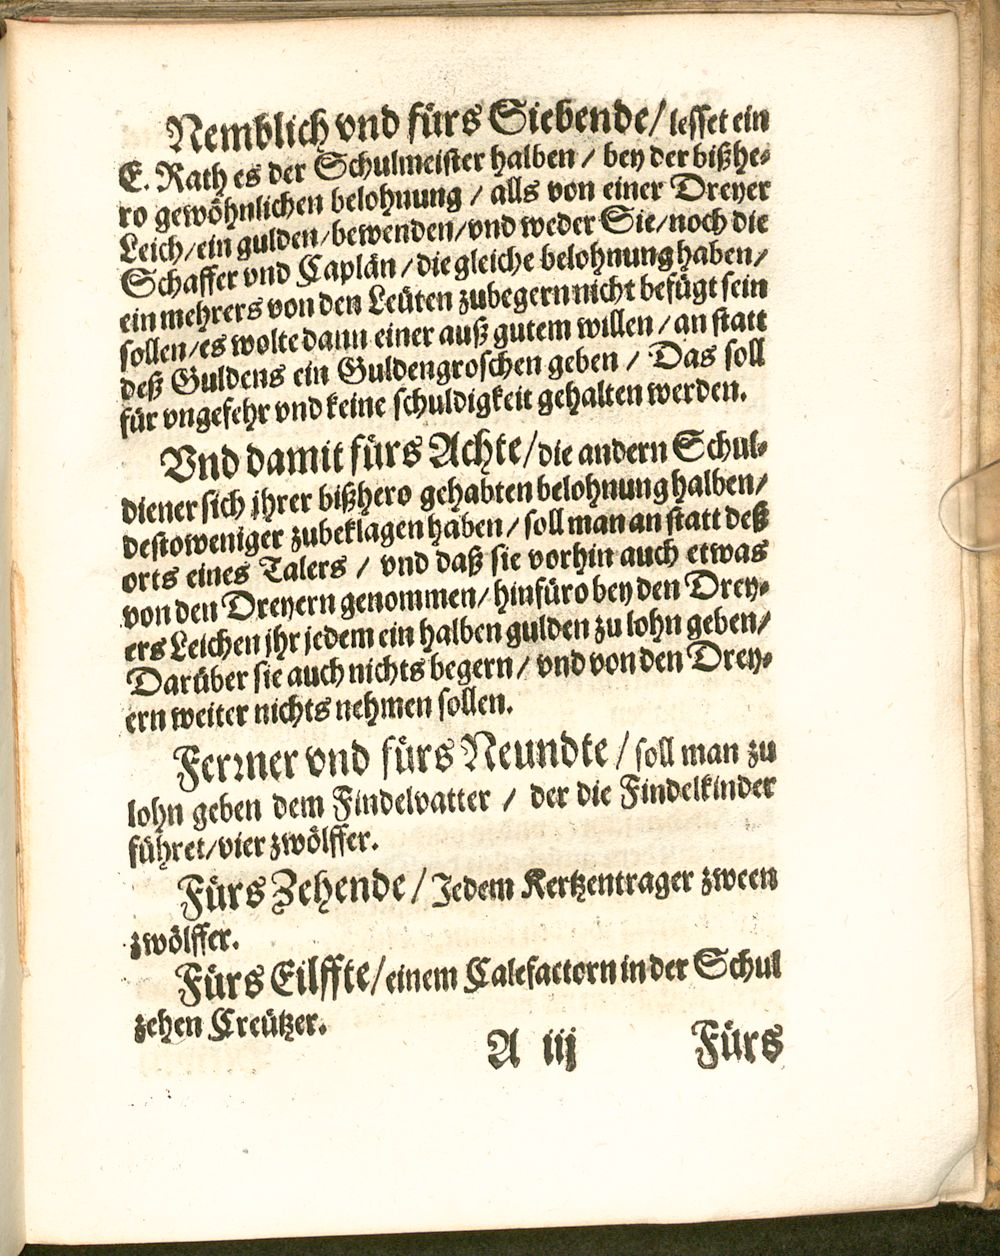 Nemblich vnd fürs Siebende/ lesset ein
E. Rath es der Schulmeister halben / bey der bißhe-
ro gewöhnlichen belohnung / alls von einer Dreyer
Leich/ein gulden/bewenden/vnd weder Sie/noch die
Schaffer vnd Caplän/die gleiche belohnung haben/
ein mehrers von den Leüten zubegern nicht befügt sein
sollen/es wolte dann einer auß gutem willen/an statt
deß Guldens ein Guldengroschen geben / Das soll
für vngefehr vnd keine schuldigkeit gehalten werden.
Vnd damit fürs Achte/die andern Schul-
diener sich jhrer bißhero gehabten belohnung halben/
destoweniger zubeklagen haben/ soll man an statt deß
orts eines Talers / vnd daß sie vorhin auch etwas
von den Dreyern genommen/hinfüro bey den Drey-
ers Leichen jhr jedem ein halben gulden zu lohn geben/
Darüber sie auch nichts begern/ vnd von den Drey-
ern weiter nichts nehmen sollen.
Ferrner vnd fürs Neundte/ soll man zu
lohn geben dem Findelvatter / der die Findelkinder
führet/vier zwölffer.
Fürs Zehende/ Jedem Kertzentrager zween
zwölffer.
Fürs Eilffte/einem Calefactorn in der Schul
zehen Creützer.
A iij Fürs